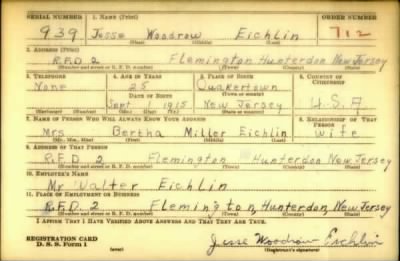 SERIAL NUMBER 1. NAME (Print) ORDER NUMBER
939 Jesse Woodrow Eichlin 712
(First) (Middle) (Last)
2. ADDRESS (Print)
R.F.D. 2 Flemington Hunterdon New Jersey
(Number and street or R. F. D. number) (Town) (County) (State)
3. TELEPHONE 4. AGE IN YEARS 5. PLACE OF BIRTH 6. COUNTRY OF CITIZENSHIP
None 25 Quakertown
DATE OF BIRTH (Town or county)
Sept 1 1915 New Jersey U.S.A.
(Mo.) (Day) (Yr.) (State or country)
7. NAME OF PERSON WHO WILL ALWAYS KNOW YOUR ADDRESS 8. RELATIONSHIP OF THAT PERSON
Mrs Bertha Miller Eichlin wife
(Mr., Mrs., Miss) (First) (Middle) (Last)
9. ADDRESS OF THAT PERSON
R.F.D. 2 Flemington Hunterdon New Jersey
(Number and street or R. F. D. number) (Town) (County) (State)
10. EMPLOYER'S NAME
Mr Walter Eichlin
11. PLACE OF EMPLOYMENT OR BUSINESS
R.F.D. 2 Flemington, Hunterdon, New Jersey
(Number and street or R. F. D. number) (Town) (County) (State)
I AFFIRM THAT I HAVE VERIFIED ABOVE ANSWERS AND THAT THEY ARE TRUE.
REGISTRATION CARD
D. S. S. Form 1 (over) Jesse Woodrow Eichlin
(Registrant's signature)